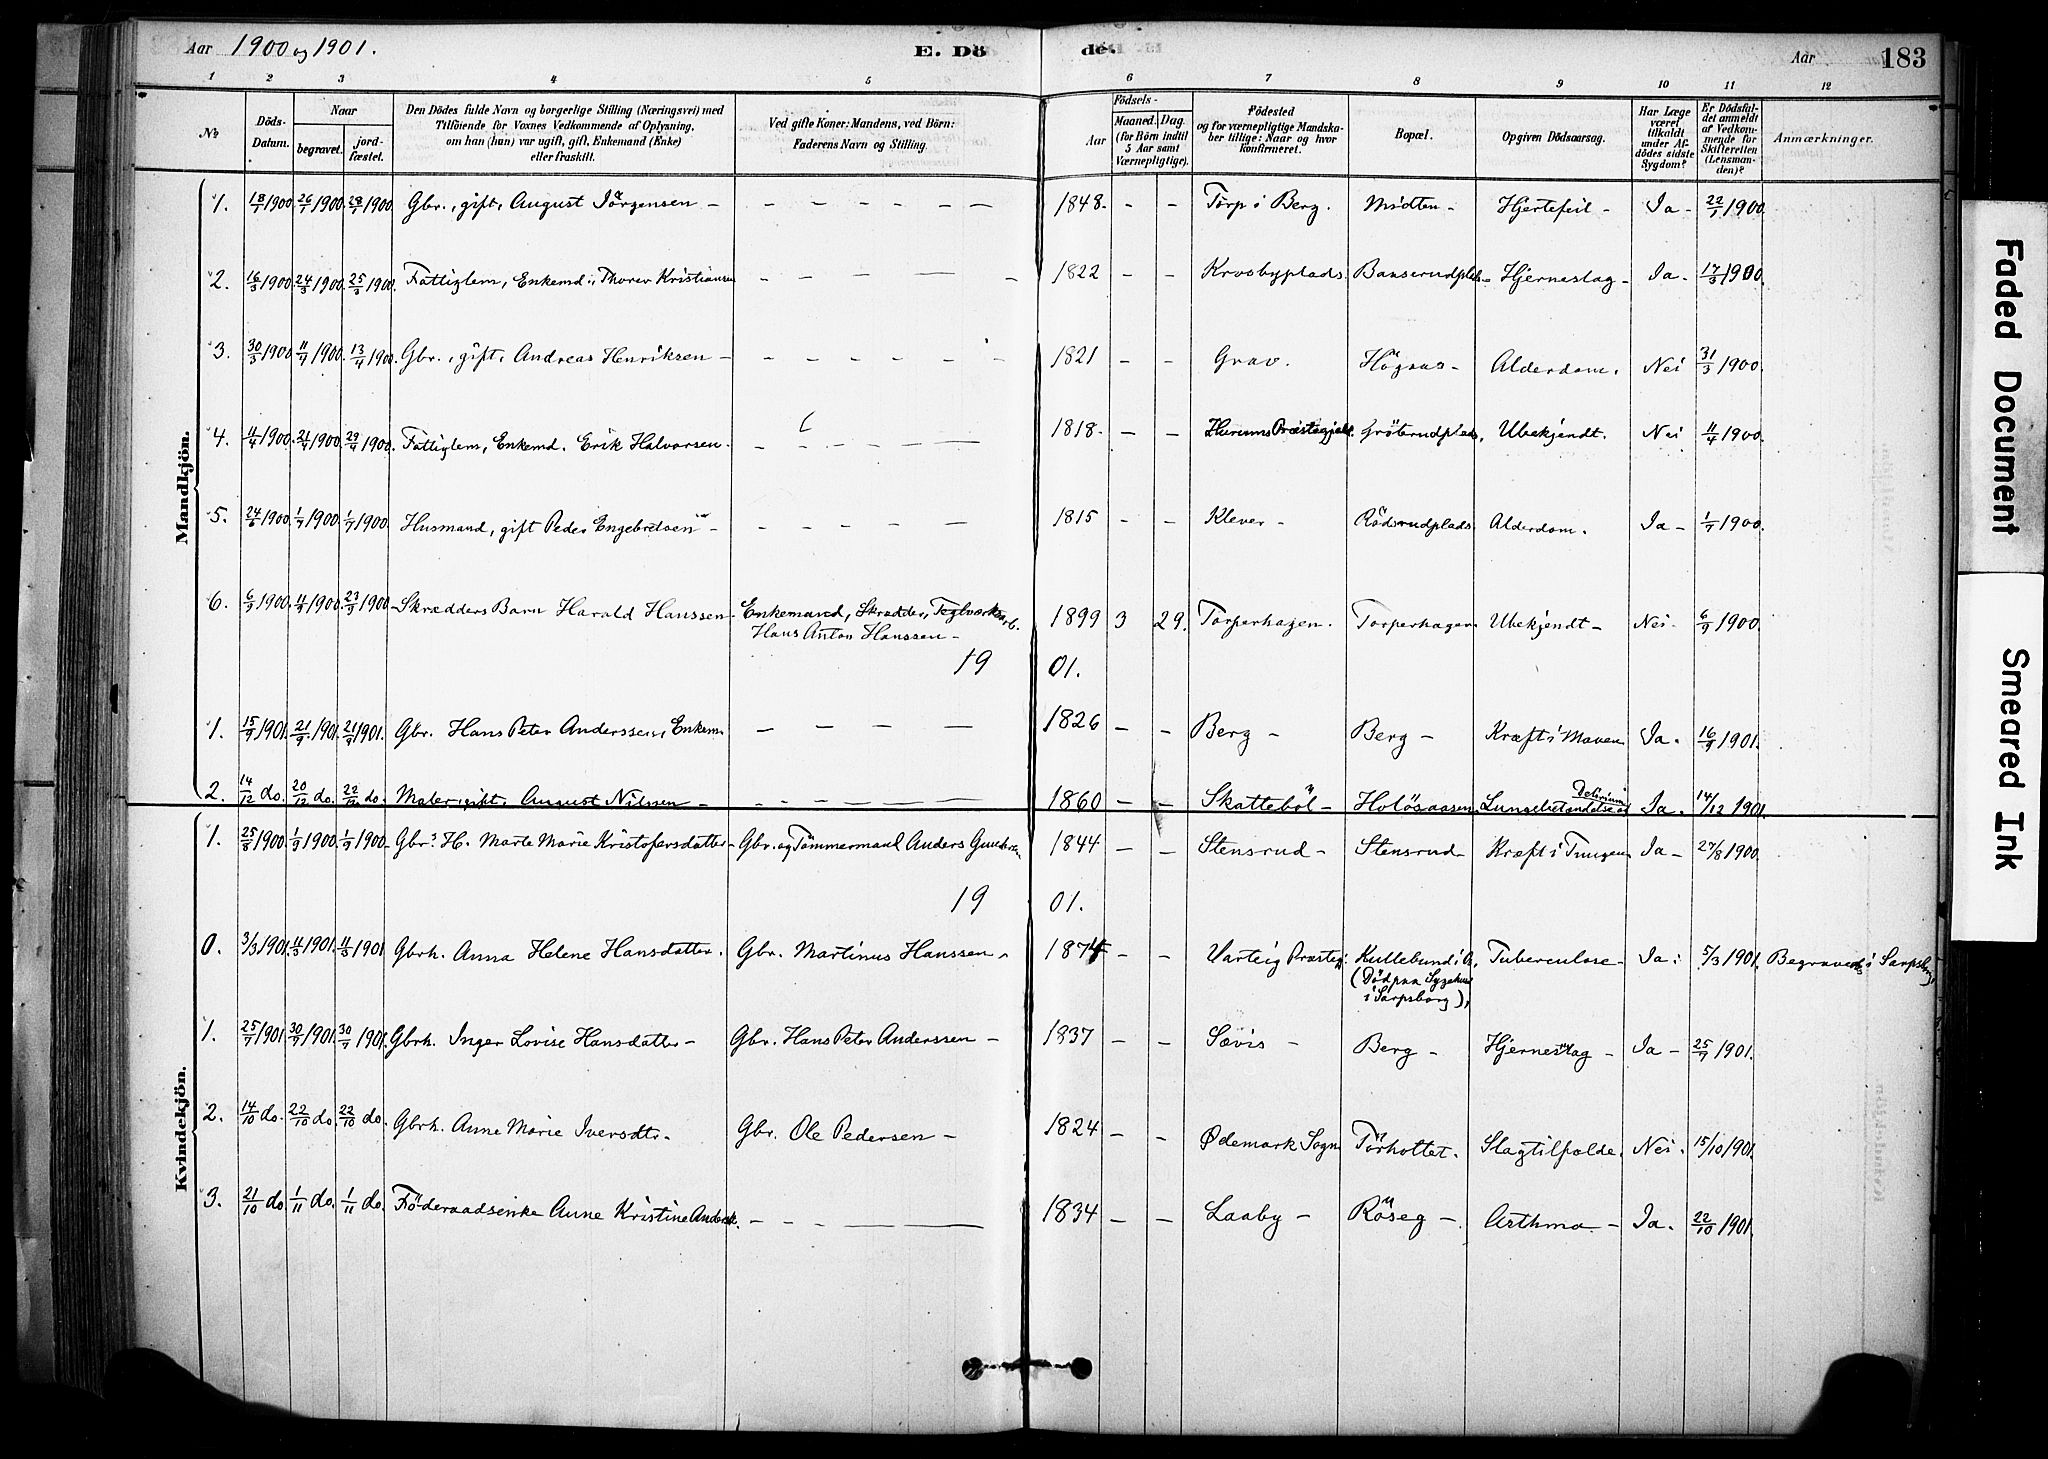 Aar 1900 og 1901. E. Döde. Aar 183
1 2 3 4 5 6 7 8 9 10 11 12
No Döds-Datum. Naar begravet. jordfæstet. Den Dödes fulde Navn og borgerlige Stilling (Næringsvei) med Tilföiende for Voxnes Vedkommende af Oplysning, om han (hun) var ugift, gift, Enkemand (Enke) eller fraskilt. Ved gifte Koner: Mandens, ved Börn: Faderens Navn og Stilling. Födsels- Aar Maaned. Dag. (for Börn indtil 5 Aar samt Værnepligtige). Födested og for værnepligtige Mandskaber tillige: Naar og hvor konfirmeret. Bopæl. Opgiven Dödsaarsag. Har Læge været tilkaldt under Afdödes sidste Sygdom? Er Dödsfaldet anmeldt af Vedkommende for Skifteretten (Lensmanden)? Anmærkninger.
Mandkjön.
1. 18/1 1900 26/1 1900 28/1 1900 Gbr., gift, August Jörgensen – – – – – – – 1848. – – Torp i Berg. Midten – Hjertefeil – Ja – 22/1 1900.
2. 16/3 1900 24/3 1900. 25/3 1900. Fattiglem, Enkemd., Thorer Kristiansen – – – – – 1822 – – Krosbyplads. Banserudplds – Hjerneslag – Ja – 17/3 1900.
3. 30/3 1900 11/4 1900. 13/4 1900. Gbr., gift, Andreas Henriksen – – – – – – – 1821 – – Grav. Högaas – Alderdom. Nei 31/3 1900.
4. 11/4 1900. 21/4 1900. 29/4 1900. Fattiglem, Enkemd. Erik Halvorsen. – – – – – 1818 – – – Hurums Præstegjeld. Gröterudplads, Ubekjendt. Nei 11/4 1900.
5. 24/6 1900. 1/7 1900. 1/7 1900. Husmand, gift Peder Engebretsen – – – – – – 1815 – – Klever – Rödsrudplads. Alderdom. Ja – 1/7 1900.
6. 6/9 1900. 1900. 23/9 1900 – Skrædders Barn Harald Hanssen. Enkemand, Skrædder, Teglværksarb. 1899 3 29. Torperhagen. Torperhagen. Ubekjendt – Nei – 6/9 1900.
Hans Anton Hanssen –
1901.
1. 15/9 1901. 21/9 1901. 21/9 1901. Gbr. Hans Peter Anderssen, Enkem. – – – – 1826 – – Berg – Berg – Kræft i Maven Ja. 16/9 1901.
2. 14/12 do. 20/12 do. 22/12 do. Maler, gift, August Nilsen – – – – – – 1860 – – Skatteböl – Holösaasen. Lungebetændelse og Delirium Ja. 14/12 1901.
Kvindekjön.
1. 25/8 1900. 1/9 1900. 1/9 1900 – Gbr. H. Marte Marie Kristofersdatter – Gbr. og Tömmermand Anders Gundersen 1844 – – Stensrud – Stensrud Kræft i Tungen Ja – 27/8 1900.
1901.
0. 3/3 1901. 11/3 1901. 11/3 1901 Gbrh. Anna Helene Hansdatter. Gbr. Martinus Hanssen – 1874 – – Varteig Præsteg. Kullebund i A, Tuberculose – Ja. 5/3 1901. Begravet i Sarpsborg,
(Död paa Sygehus
i Sarpsborg),
1. 25/7 1901. 30/7 1901. 30/7 1901. Gbrh. Inger Lovise Hansdatter – Gbr. Hans Peter Anderssen – 1837 – – Sævis – Berg – Hjerneslag – Ja – 25/7 1901.
2. 14/10 do. 22/10 do. 22/10 do. Gbrh. Anne Marie Iversdtr. Gbr. Ole Pedersen – 1824 – – Ødemark Sogn Törholtet. Slagtilfælde. Nei. 15/10 1901.
3. 21/10 do. 1/11 do. 1/11 do. Föderaadsenke Anne Kristine Andersd. – – – – – 1834 – – Laaby – Röseg – Asthma – Ja. 22/10 1901.
Faded Document
Smeared Ink